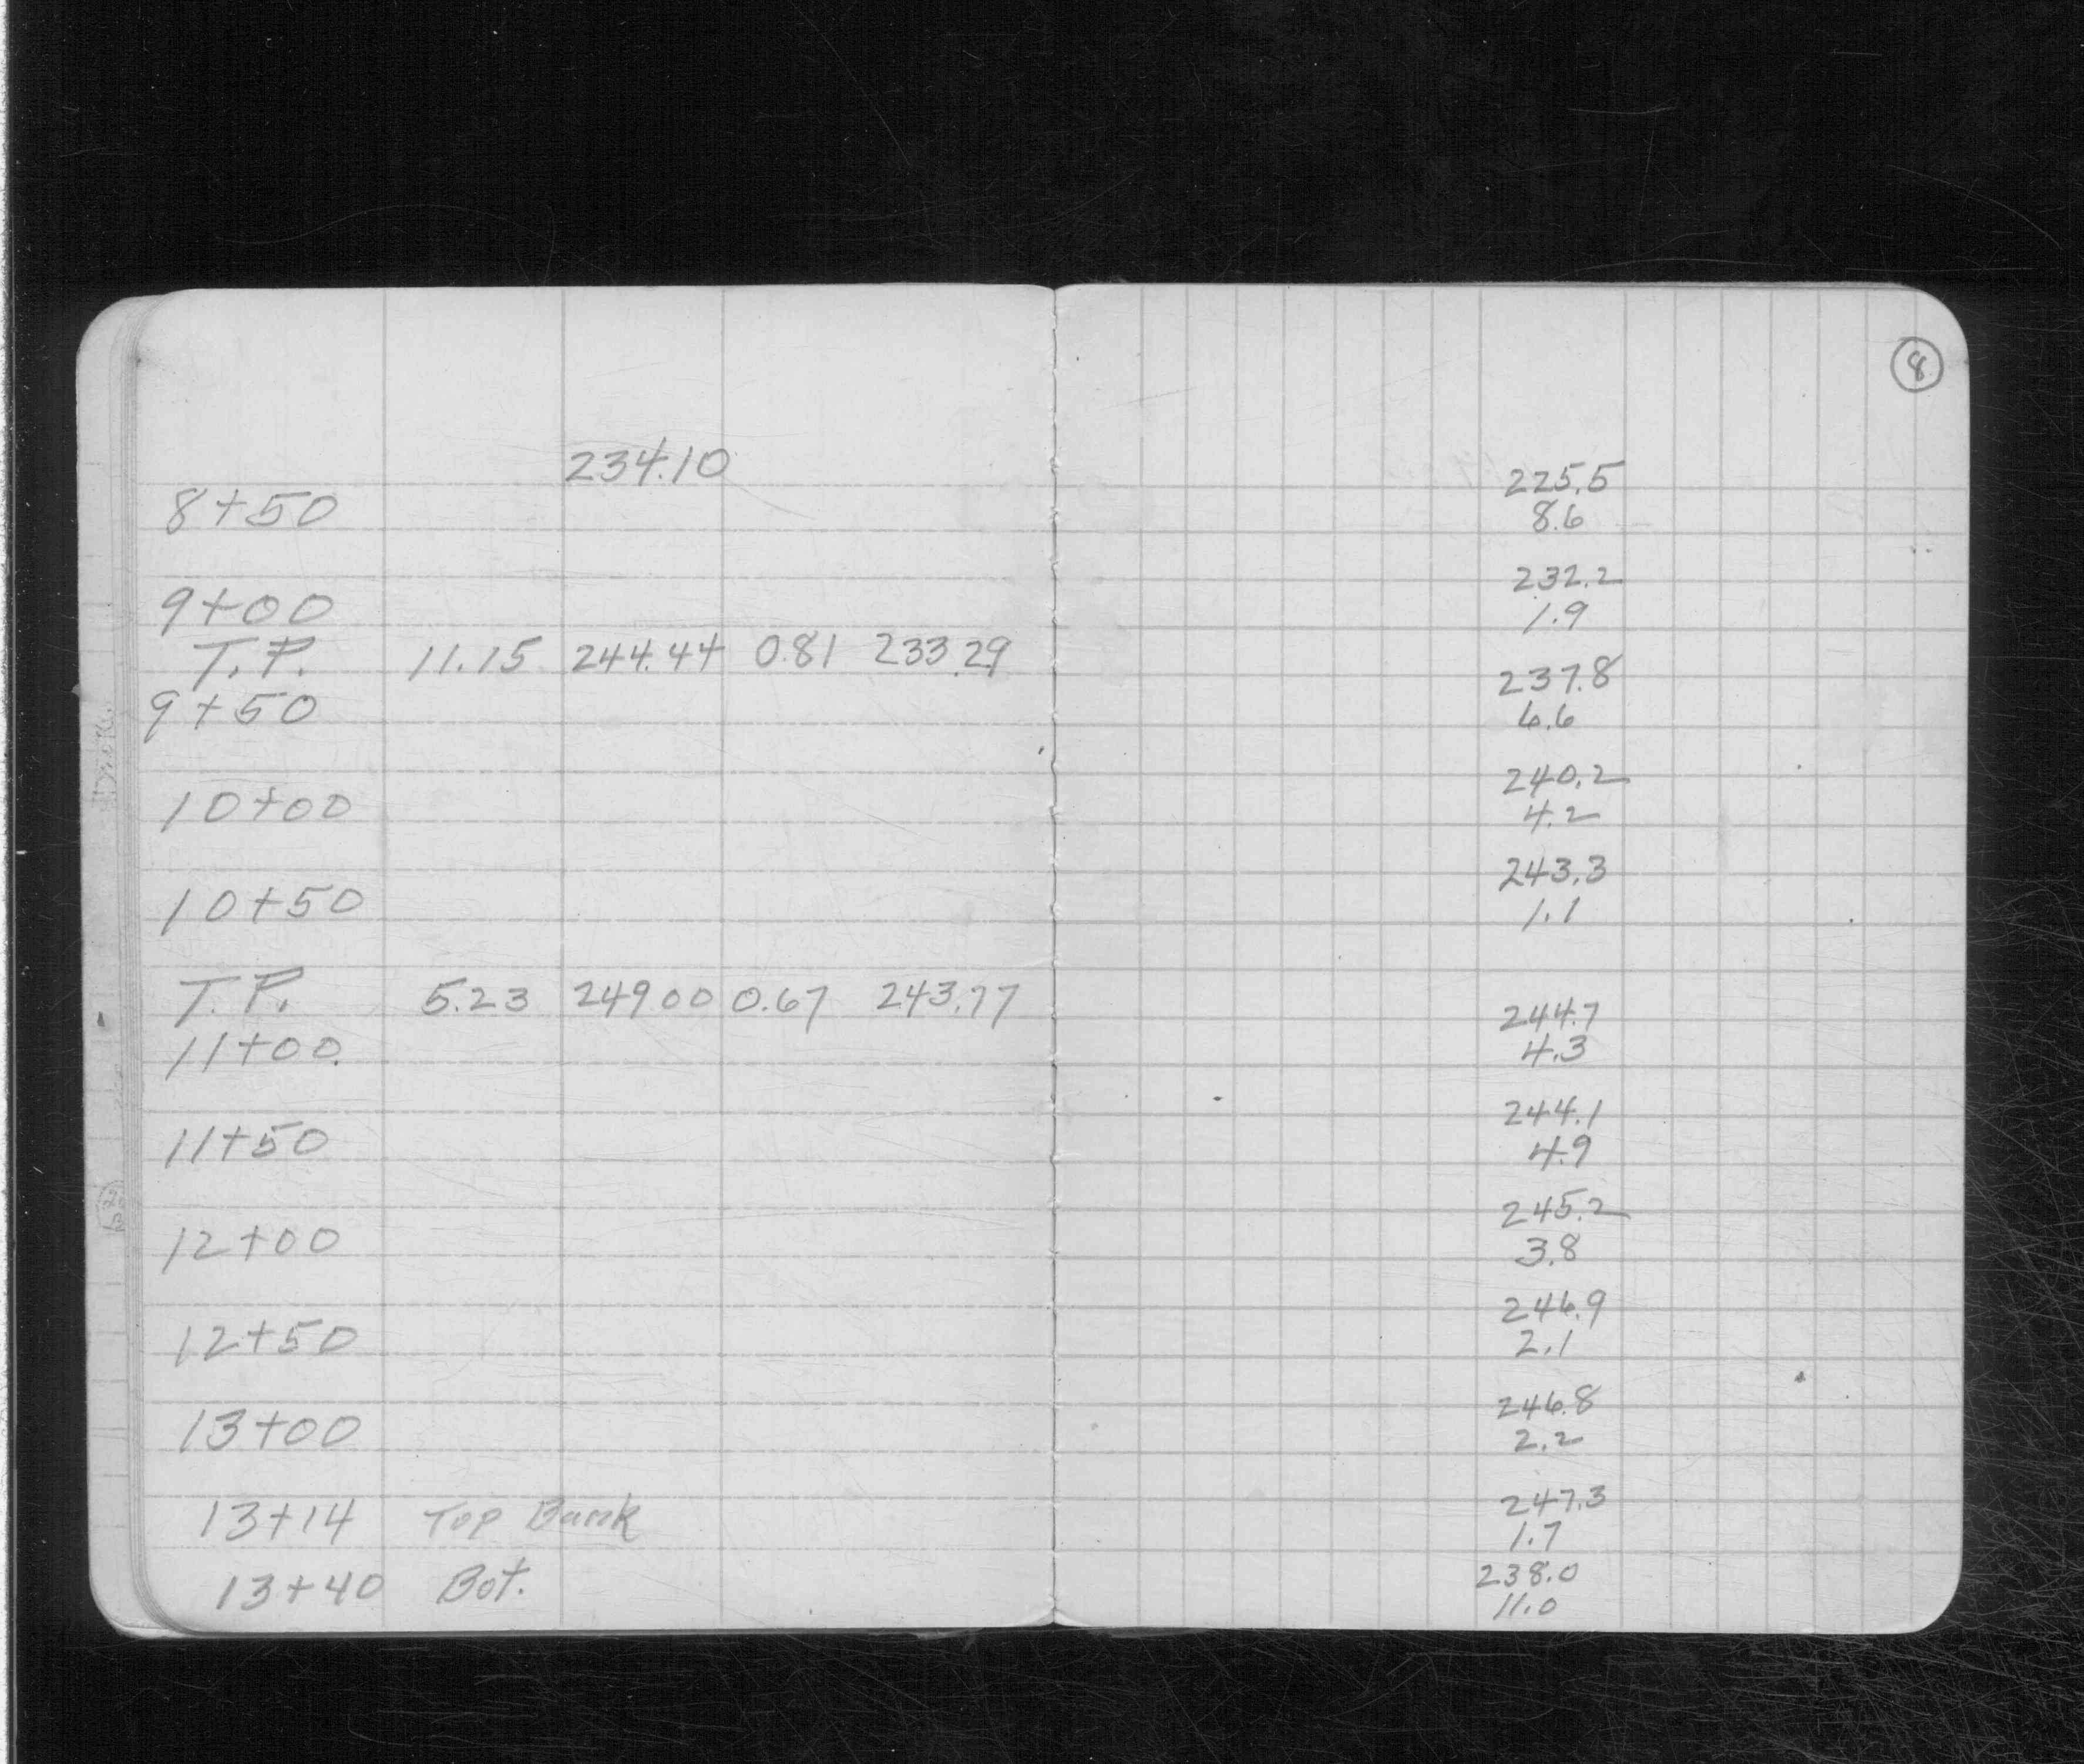 8
234.10
225.5
8+50
8.6
232.2
9+00
1.9
T.P. 11.15 244.44 0.81 233.29
237.8
9+50
6.6
240.2
10+00
4.2
243.3
10+50
1.1
T.P. 5.23 249.00 0.67 243.77
244.7
11+00
4.3
244.1
11+50
4.9
245.2
12+00
3.8
246.9
12+50
2.1
246.8
13+00
2.2
247.3
13+14 Top Bank
1.7
238.0
13+40 Bot.
11.0